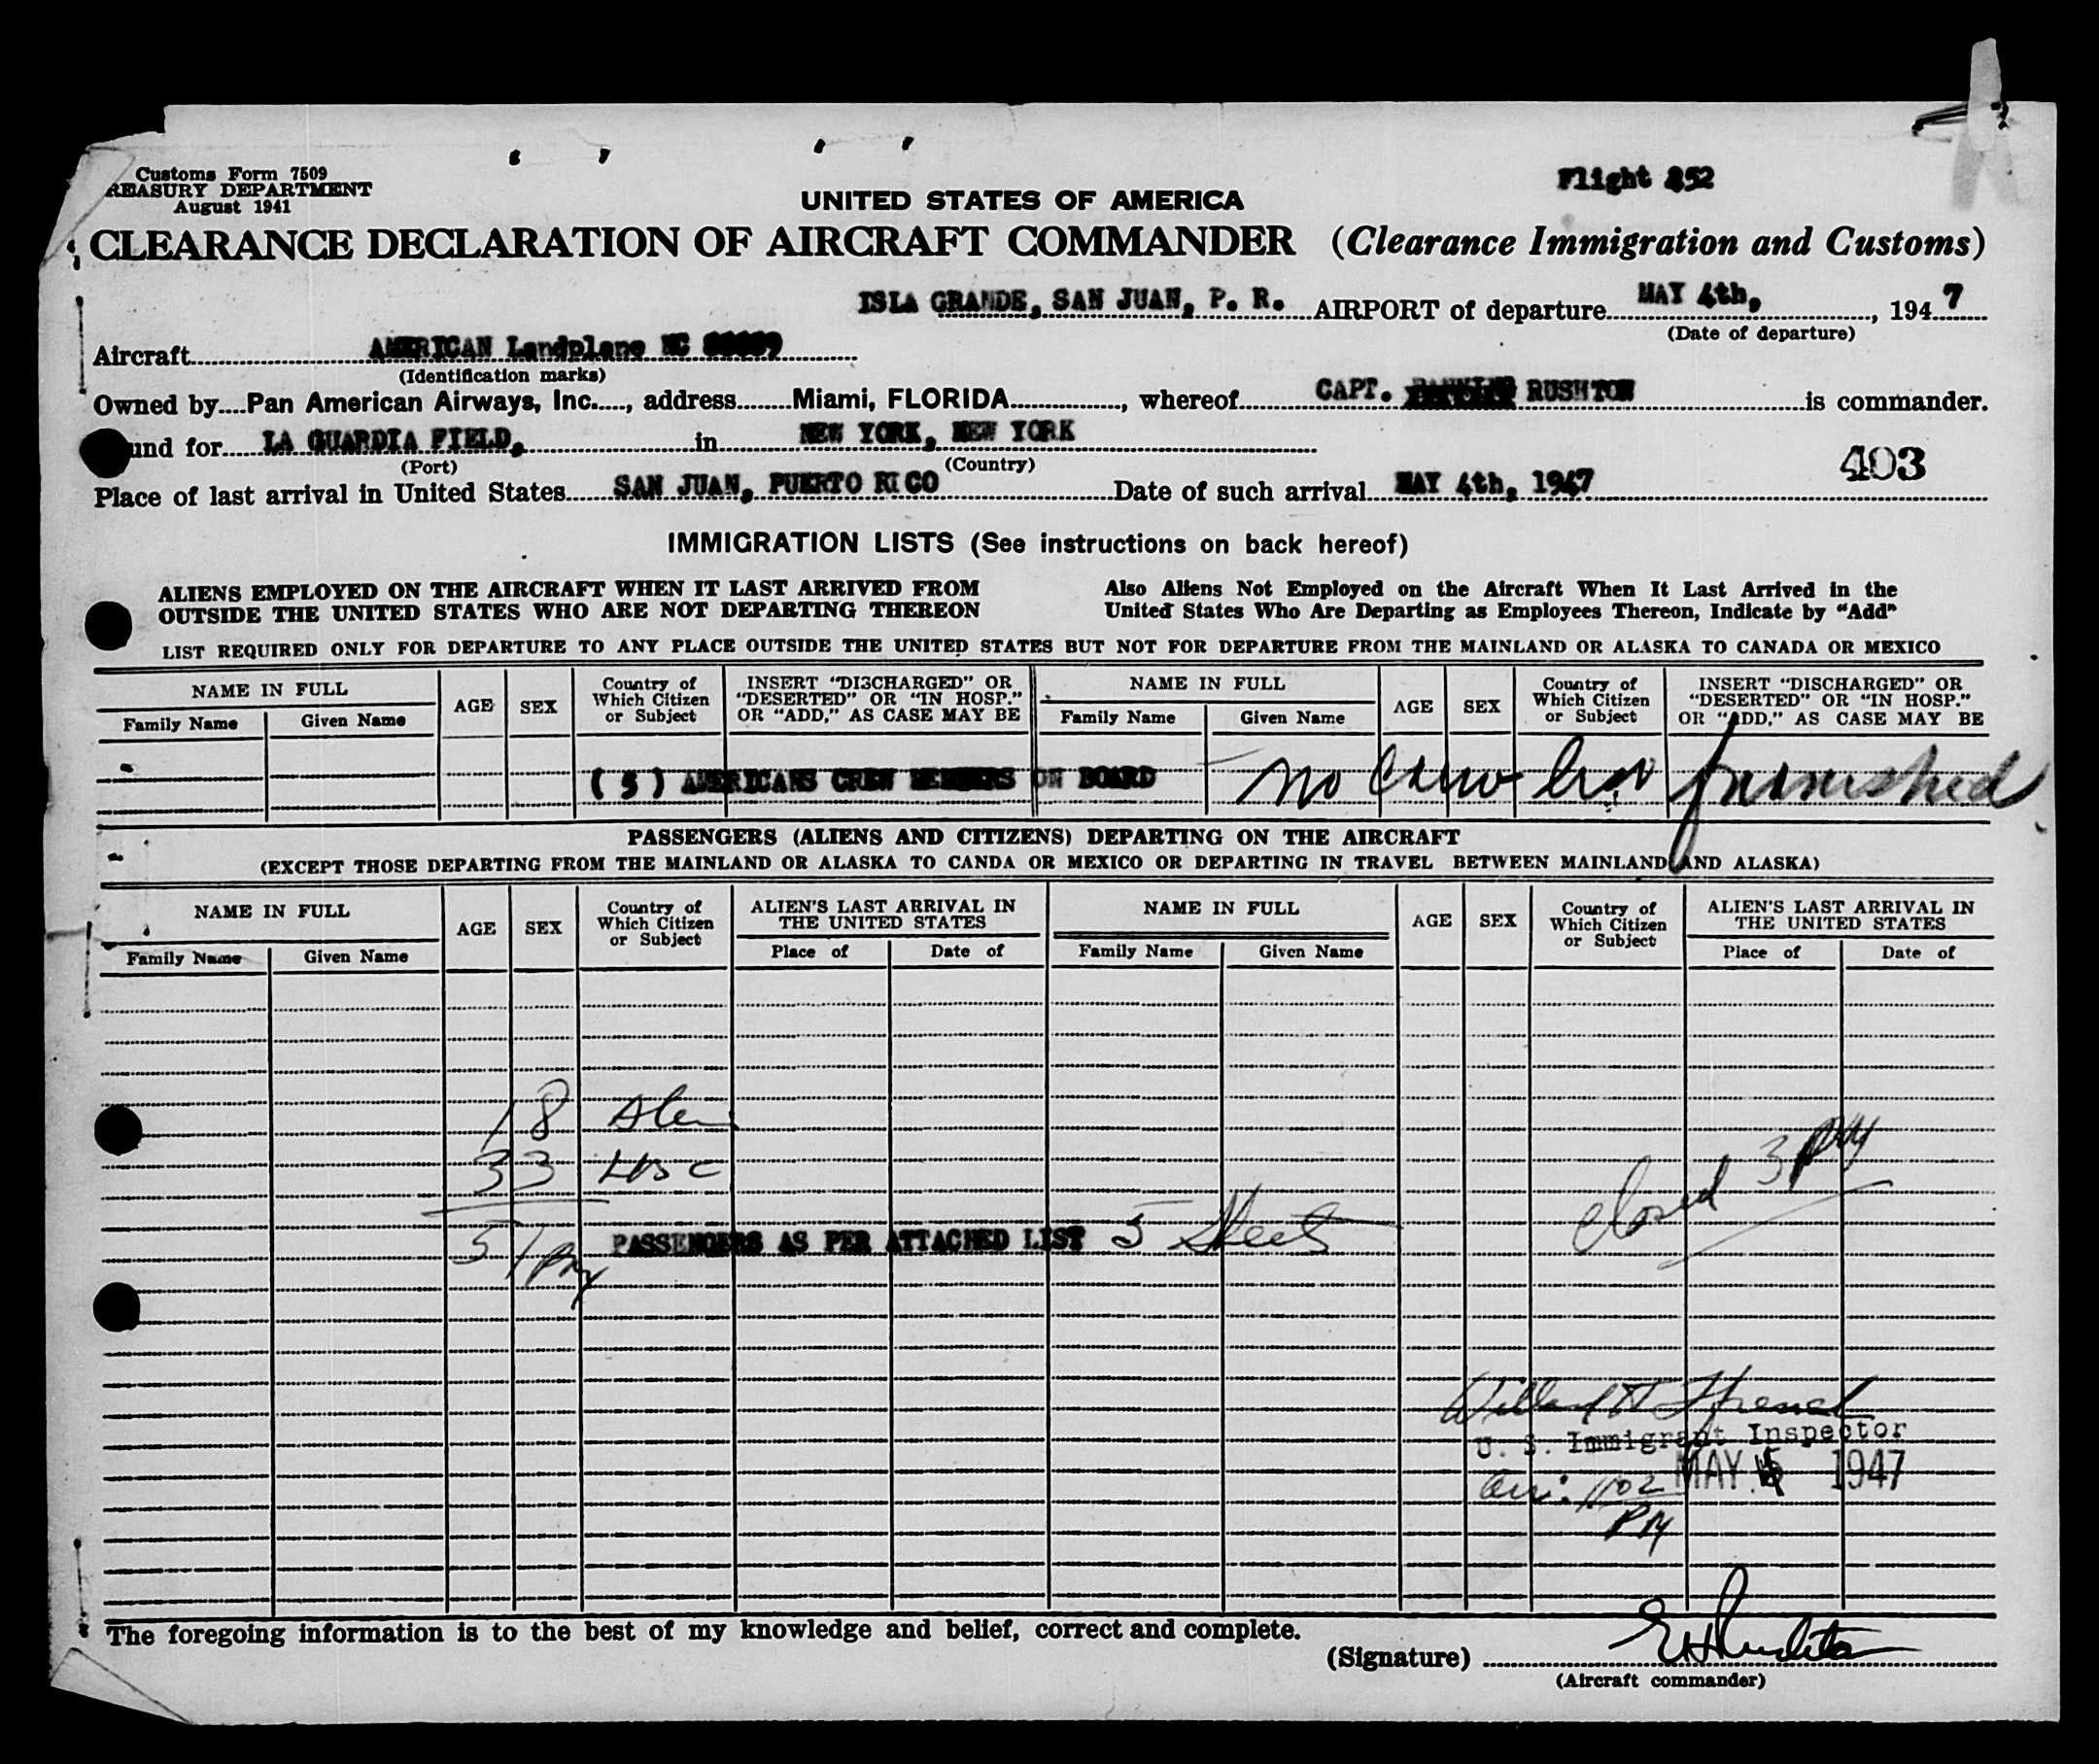 Customs Form 7509
REASURY DEPARTMENT
August 1941
Flight 252
UNITED STATES OF AMERICA
CLEARANCE DECLARATION OF AIRCRAFT COMMANDER (Clearance Immigration and Customs)
ISLA GRANDE, SAN JUAN, P. R. AIRPORT of departure MAY 4th, , 1947
(Date of departure)
Aircraft AMERICAN Landplane NC
(Identification marks)
Owned by Pan American Airways, Inc. , address Miami, FLORIDA , whereof CAPT. RUSHTON is commander.
und for LA GUARDIA FIELD, in NEW YORK, NEW YORK
(Port) (Country)
403
Place of last arrival in United States SAN JUAN, PUERTO RICO Date of such arrival MAY 4th, 1947
IMMIGRATION LISTS (See instructions on back hereof)
ALIENS EMPLOYED ON THE AIRCRAFT WHEN IT LAST ARRIVED FROM
OUTSIDE THE UNITED STATES WHO ARE NOT DEPARTING THEREON
Also Aliens Not Employed on the Aircraft When It Last Arrived in the
United States Who Are Departing as Employees Thereon, Indicate by "Add"
LIST REQUIRED ONLY FOR DEPARTURE TO ANY PLACE OUTSIDE THE UNITED STATES BUT NOT FOR DEPARTURE FROM THE MAINLAND OR ALASKA TO CANADA OR MEXICO
NAME IN FULL
Family Name Given Name
AGE SEX
Country of
Which Citizen
or Subject
INSERT "DISCHARGED" OR
"DESERTED" OR "IN HOSP."
OR "ADD," AS CASE MAY BE
NAME IN FULL
Family Name Given Name
AGE SEX
Country of
Which Citizen
or Subject
INSERT "DISCHARGED" OR
"DESERTED" OR "IN HOSP."
OR "ADD," AS CASE MAY BE
( 5 ) AMERICANS CREW MEMBERS ON BOARD no crew list furnished
PASSENGERS (ALIENS AND CITIZENS) DEPARTING ON THE AIRCRAFT
(EXCEPT THOSE DEPARTING FROM THE MAINLAND OR ALASKA TO CANDA OR MEXICO OR DEPARTING IN TRAVEL BETWEEN MAINLAND AND ALASKA)
NAME IN FULL
Family Name Given Name
AGE SEX
Country of
Which Citizen
or Subject
ALIEN'S LAST ARRIVAL IN
THE UNITED STATES
Place of Date of
NAME IN FULL
Family Name Given Name
AGE SEX
Country of
Which Citizen
or Subject
ALIEN'S LAST ARRIVAL IN
THE UNITED STATES
Place of Date of
18 Alen
33 USC
closed 3 PM
51 PASSENGERS AS PER ATTACHED LIST 5 Sheets
U. S. Immigrant Inspector
MAY 5 1947
arr: 1102
PM
The foregoing information is to the best of my knowledge and belief, correct and complete.
(Signature) EH Rushton
(Aircraft commander)